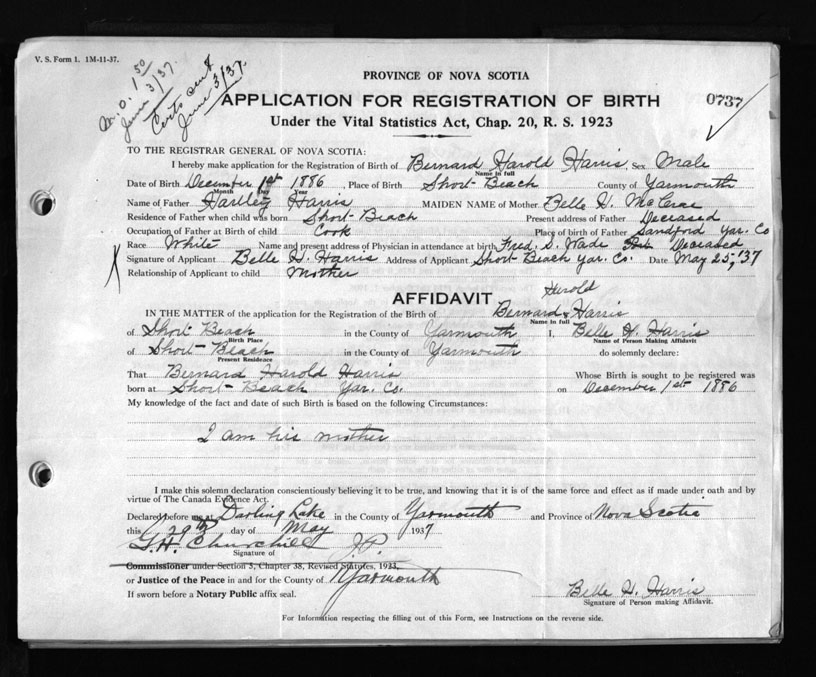 V. S. Form 1. 1M-11-37.
M.O. 1.50
June 3/37.
Certs sent
June 3/37.
PROVINCE OF NOVA SCOTIA
APPLICATION FOR REGISTRATION OF BIRTH
0737
Under the Vital Statistics Act, Chap. 20, R. S. 1923
TO THE REGISTRAR GENERAL OF NOVA SCOTIA:
I hereby make application for the Registration of Birth of Bernard Harold Harris, Sex Male
Name in full
Date of Birth December 1st 1886, Place of Birth Short Beach County of Yarmouth
Month Day Year
Name of Father Hartley Harris MAIDEN NAME of Mother Belle H.
Residence of Father when child was born Short Beach Present address of Father Deceased
Occupation of Father at Birth of child Cook Place of birth of Father Sandford Yar. Co
Race White Name and present address of Physician in attendance at birth Fred. S. Wade Deceased
X Signature of Applicant Belle H. Harris Address of Applicant Short Beach Yar. Co. Date May 25, '37
Relationship of Applicant to child Mother
AFFIDAVIT
Harold
IN THE MATTER of the application for the Registration of the Birth of Bernard Harris
Name in full
of Short Beach in the County of Yarmouth I, Belle H. Harris
Birth Place Name of Person Making Affidavit
of Short Beach in the County of Yarmouth do solemnly declare:
Present Residence
That Bernard Harold Harris Whose Birth is sought to be registered was
born at Short Beach Yar. Co. on December 1st 1886
My knowledge of the fact and date of such Birth is based on the following Circumstances:
I am his mother
I make this solemn declaration conscientiously believing it to be true, and knowing that it is of the same force and effect as if made under oath and by
virtue of The Canada Evidence Act.
Declared before me at Darling Lake in the County of Yarmouth and Province of Nova Scotia
this 29th day of May 1937
G. H. Churchill J.P.
Signature of
Commissioner under Section 3, Chapter 38, Revised Statutes, 1923,
or Justice of the Peace in and for the County of Yarmouth
If sworn before a Notary Public affix seal.
Belle H. Harris
Signature of Person making Affidavit.
For Information respecting the filling out of this Form, see Instructions on the reverse side.